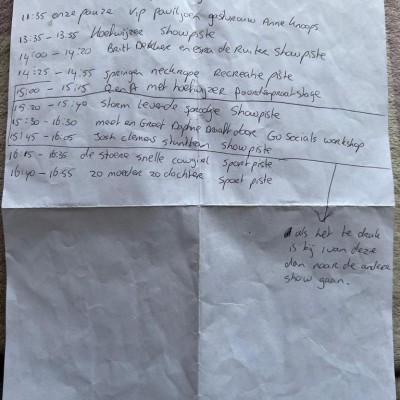 11:35 onze pauze vip paviljoen gastvrouw Anne Knoops
13:35 - 13:55 Hoefwijzer Showpiste
14:00 - 14:20 Britt Dekker en Esra de Ruiter Showpiste
14:25 - 14:55 springen Recreatie piste
15:00 - 15:15 met hoefwijzer paardenpraatstage
15:20 - 15:40 storm levende sprookje Showpiste
15:30 - 16:30 meet en Greet Daphne Draaft door Go Socials workshop
15:45 - 16:05 Josh clemens stuntteam showpiste
16:15 - 16:35 de stoere snelle cowgirl sport piste
16:40 - 16:55 zo moeder zo dochter sport piste
als het te druk
is bij 1 van deze
dan naar de andere
show gaan.